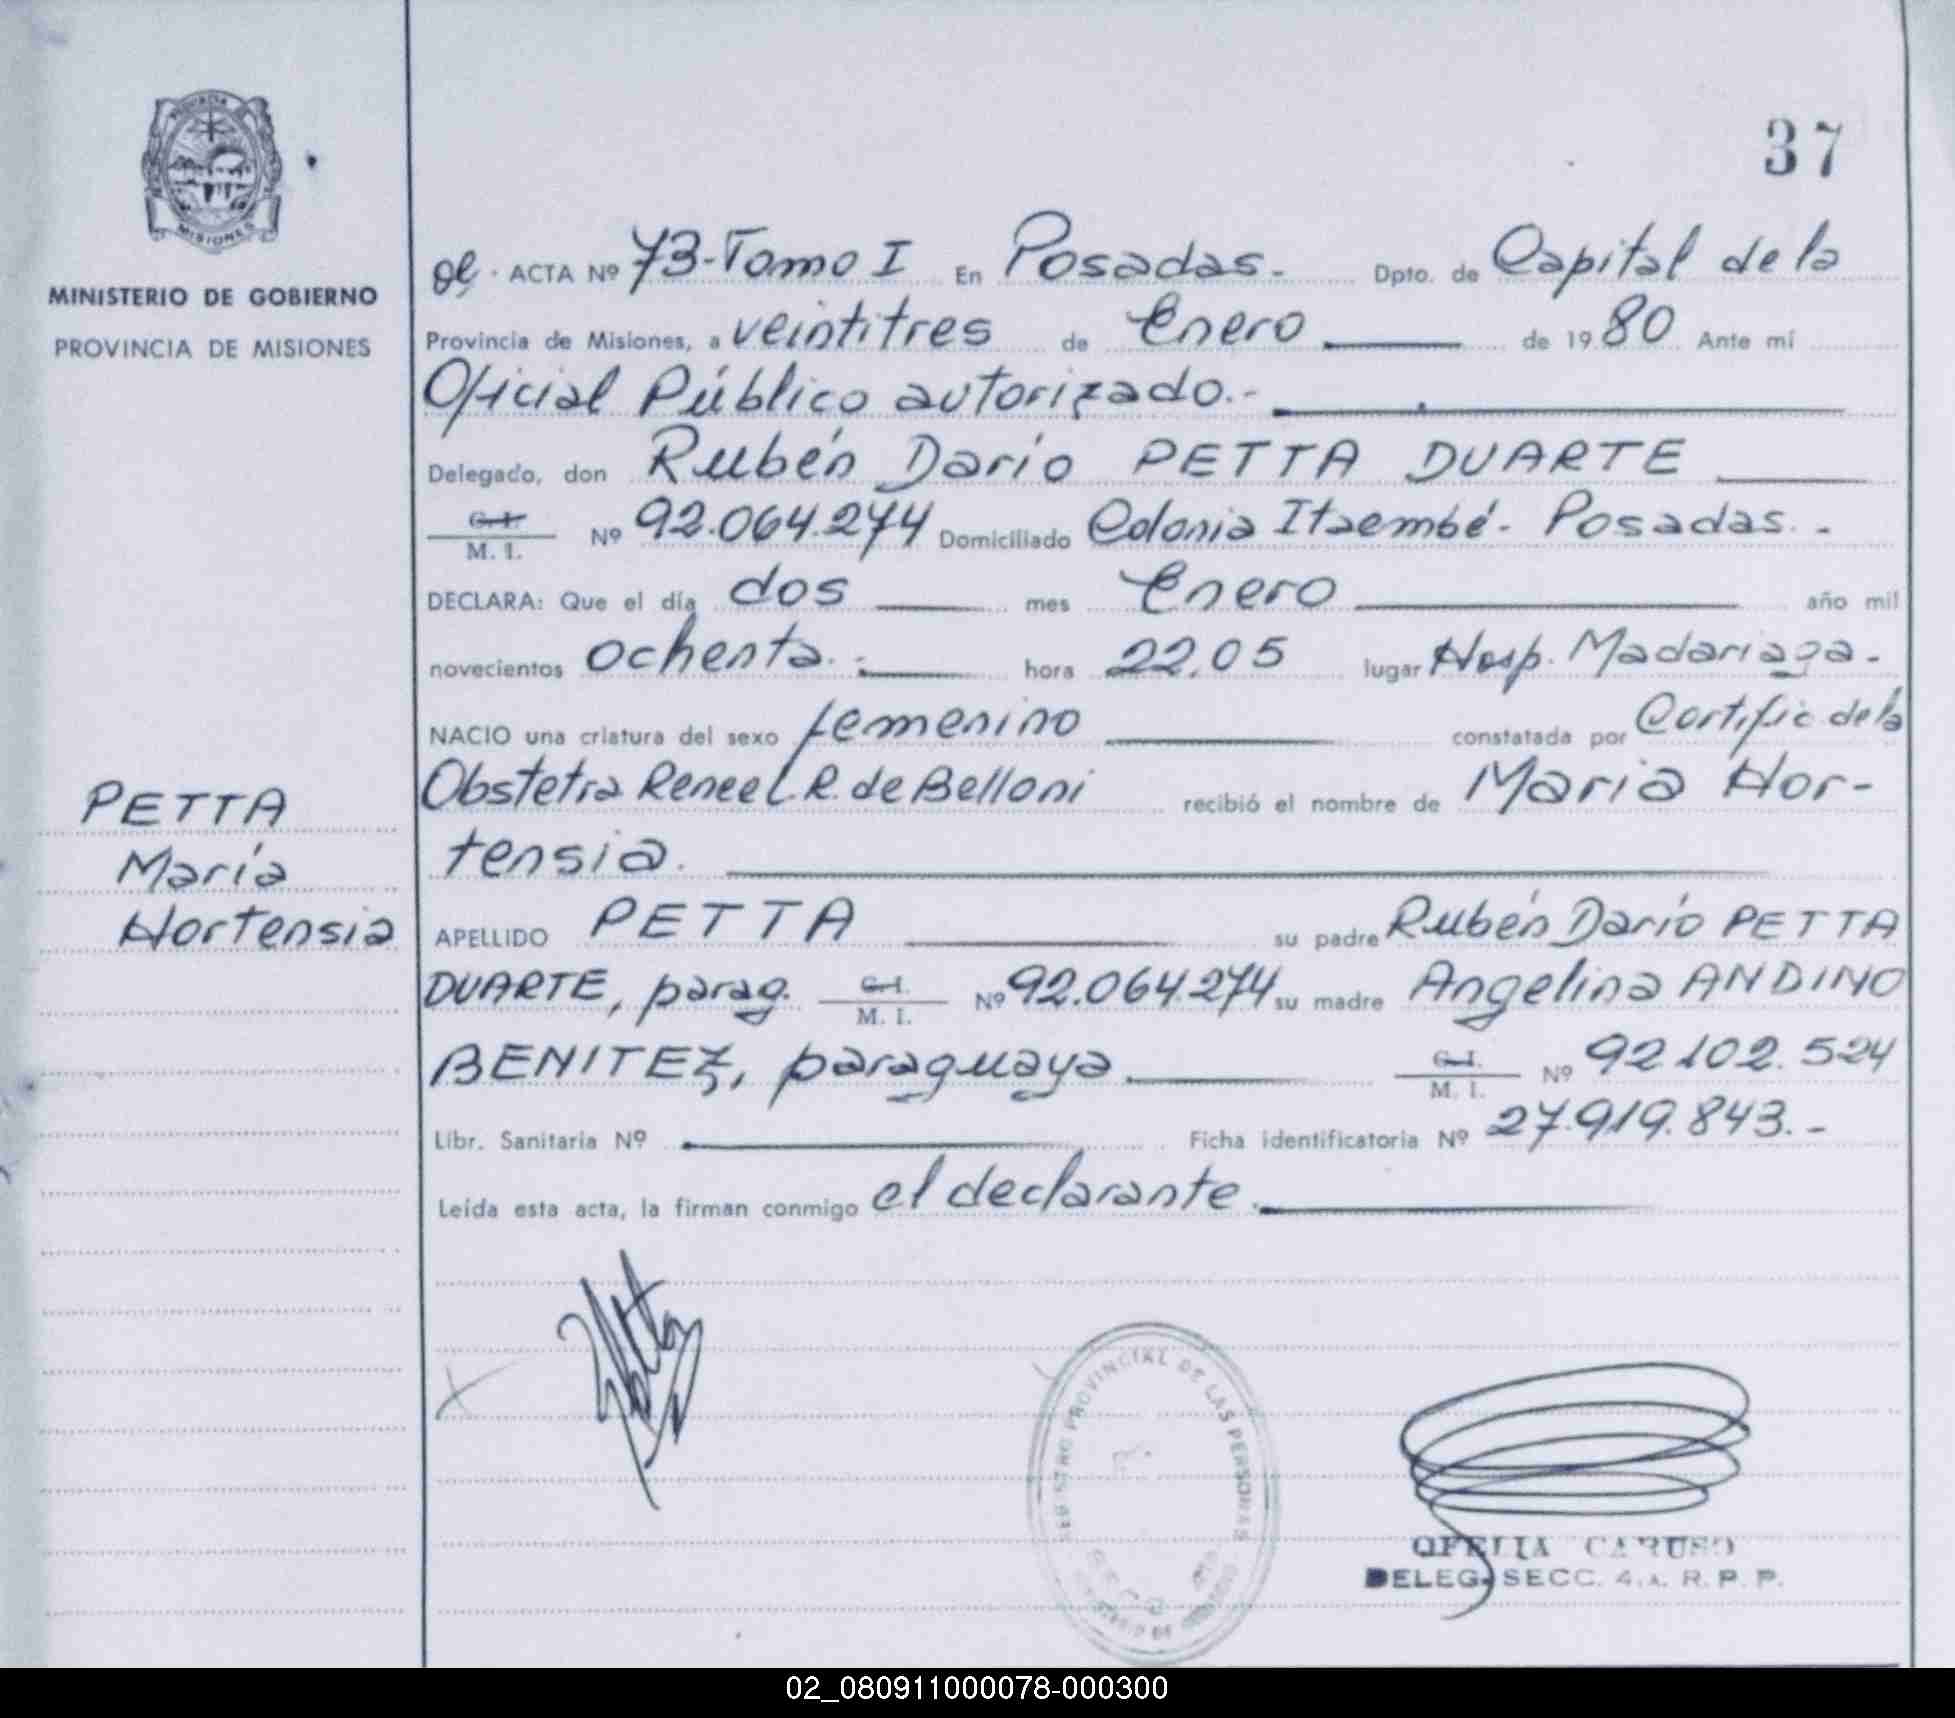 37
MISIONES
MINISTERIO DE GOBIERNO
PROVINCIA DE MISIONES
ACTA Nº 73-Tomo I En Posadas.- Dpto. de Capital de la
Provincia de Misiones, a veintitres de Enero de 1980 Ante mí
Oficial Público autorizado.-
Delegado, don Rubén Darío PETTA DUARTE
C.I. M. I. Nº 92.064.274 Domiciliado Colonia Itaembé - Posadas. -
DECLARA: Que el día dos mes Enero año mil
novecientos ochenta.- hora 22,05 lugar Hosp. Madariaga.-
NACIO una criatura del sexo femenino constatada por Certific de la
Obstetra Renee L. R. de Belloni recibió el nombre de María Hor-
tensia.
APELLIDO PETTA su padre Rubén Darío PETTA
DUARTE, parag. C.I. M. I. Nº 92.064.274 su madre Angelina ANDINO
BENITEZ, paraguaya C.I. M. I. Nº 92.102.524
Libr. Sanitaria Nº Ficha identificatoria Nº 27.919.843.-
Leída esta acta, la firman conmigo el declarante.
PETTA
María
Hortensia
REGISTRO PROVINCIAL DE LAS PERSONAS
OFELIA CARUSO
DELEG. SECC. 4.A. R. P. P.
02_080911000078-000300